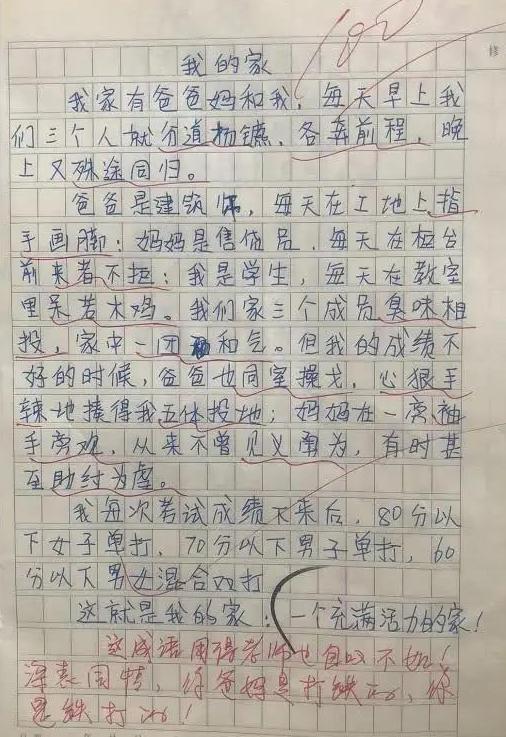 100
修
我的家
我家有爸爸妈和我,每天早上我
们三个人就分道杨镳,各奔前程,晚
上又殊途同归。
爸爸是建筑师,每天在工地上指
手画脚;妈妈是售货员,每天在柜台
前来者不拒;我是学生,每天在教室
里呆若木鸡。我们家三个成员臭味相
投,家中一团和气。但我的成绩不
好的时候,爸爸也同室操戈,心狠手
辣地揍得我五体投地;妈妈在一旁袖
手旁观,从来不曾见义勇为,有时甚
至助纣为虐。
我每次考试成绩下来后,80分以
下女子单打,70分以下男子单打,60
分以下男女混合双打
这就是我的家:一个充满活力的家!
这成语用得老师也自叹不如!
深表同情,你爸妈是打铁的,你
是铁打的!